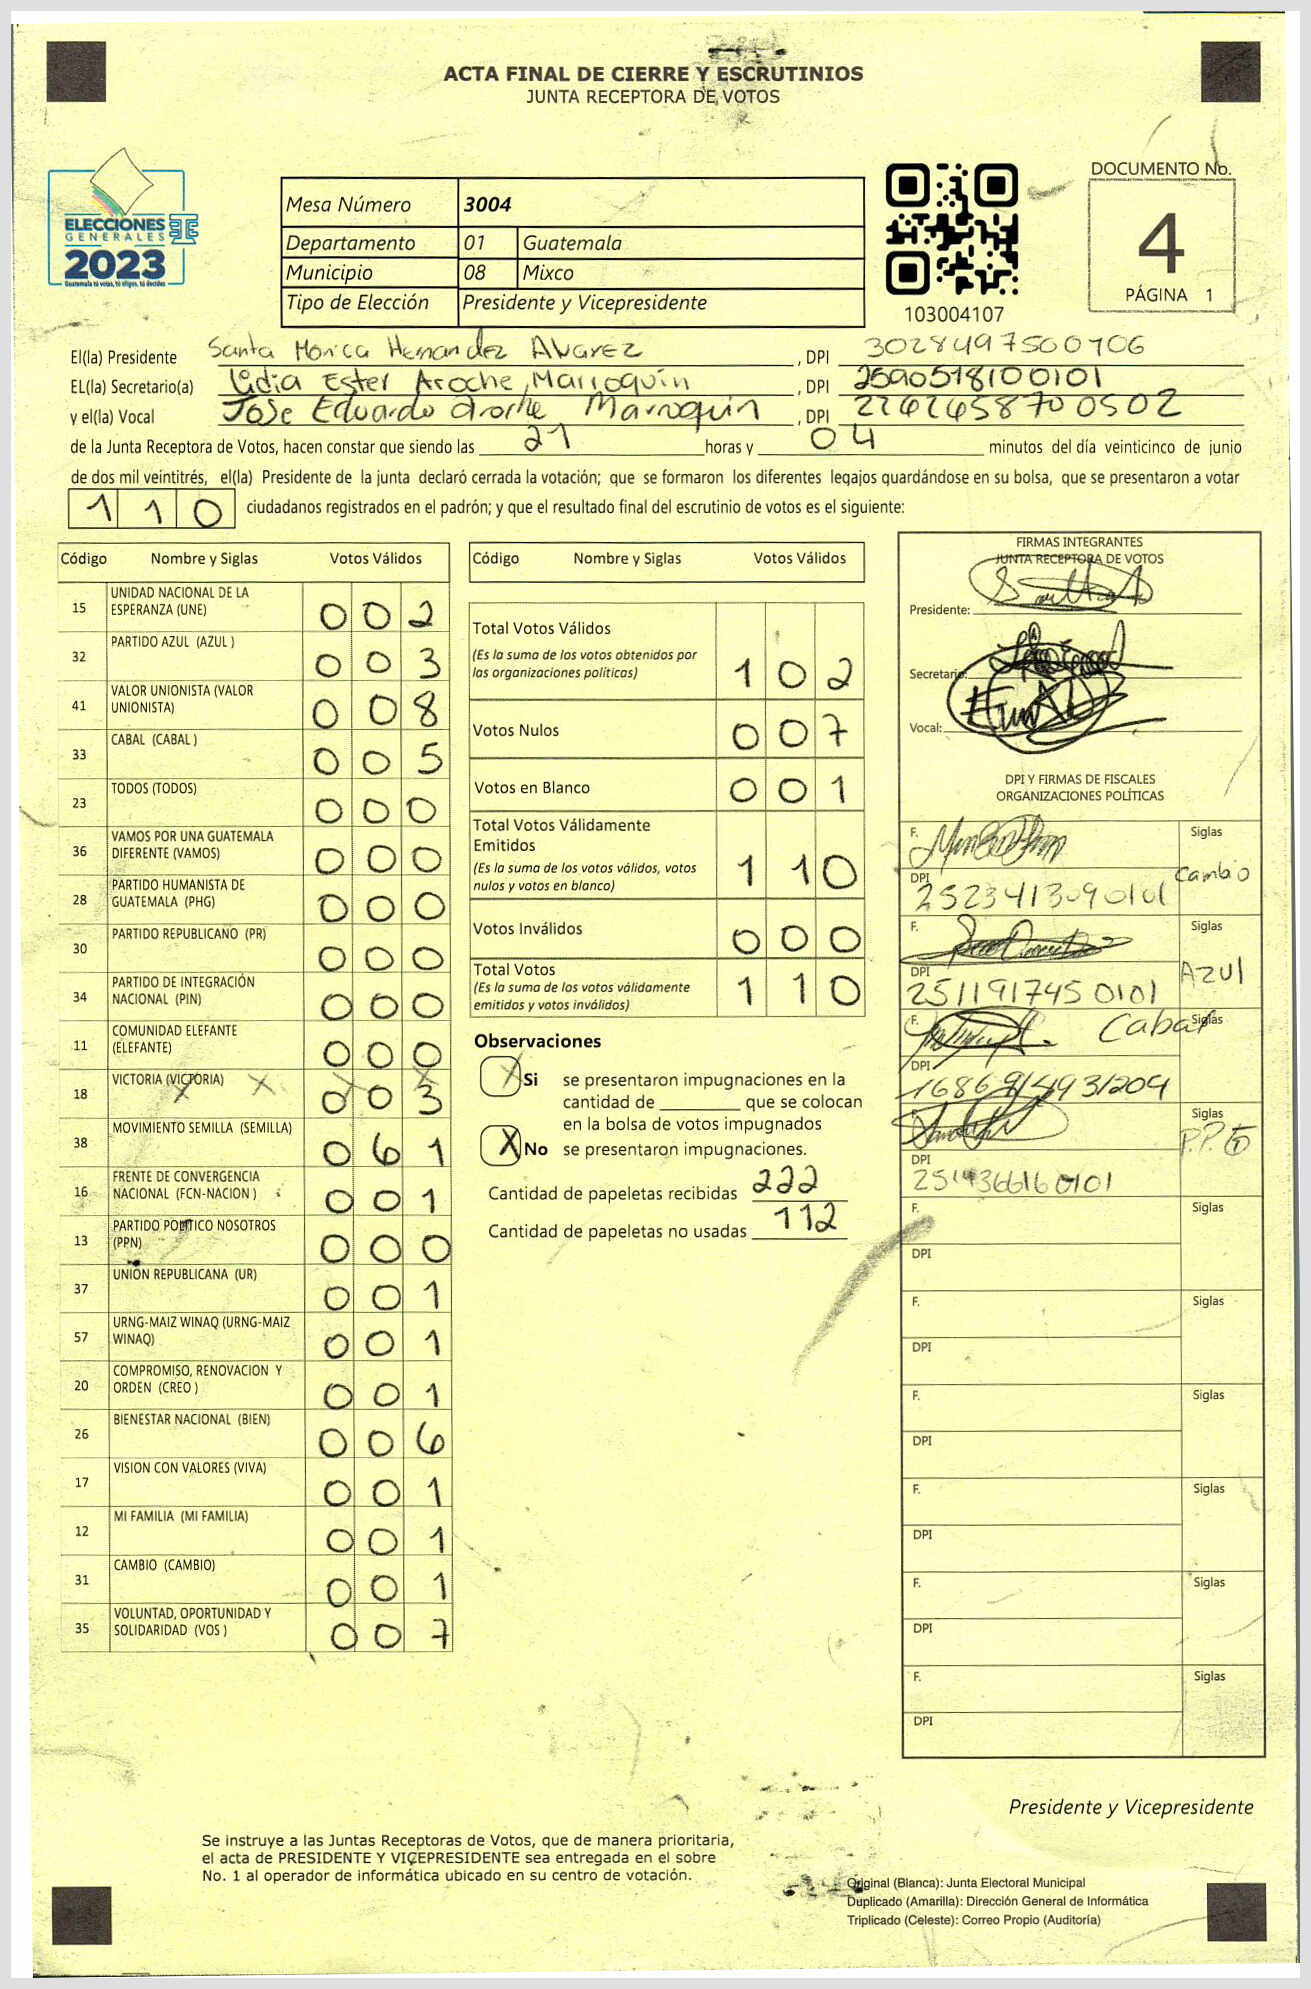 ACTA FINAL DE CIERRE Y ESCRUTINIOS
JUNTA RECEPTORA DE VOTOS
ELECCIONES
GENERALES
2023
Guatemala tú votas, tú eliges, tú decides
Mesa Número 3004
Departamento 01 Guatemala
Municipio 08 Mixco
Tipo de Elección Presidente y Vicepresidente
103004107
DOCUMENTO No.
4
PÁGINA 1
El(la) Presidente Santa Monica Hernandez Alvarez, DPI 3028497500706
EL(la) Secretario(a) Lidia Ester Aroche Marroquín, DPI 2590518100101
y el(la) Vocal Jose Eduardo Aroche Marroquin, DPI 2262658700502
de la Junta Receptora de Votos, hacen constar que siendo las 21 horas y 04 minutos del día veinticinco de junio
de dos mil veintitrés, el(la) Presidente de la junta declaró cerrada la votación; que se formaron los diferentes legajos guardándose en su bolsa, que se presentaron a votar
110 ciudadanos registrados en el padrón; y que el resultado final del escrutinio de votos es el siguiente:
Código Nombre y Siglas Votos Válidos
15 UNIDAD NACIONAL DE LA ESPERANZA (UNE) 002
32 PARTIDO AZUL (AZUL ) 003
41 VALOR UNIONISTA (VALOR UNIONISTA) 008
33 CABAL (CABAL ) 005
23 TODOS (TODOS) 000
36 VAMOS POR UNA GUATEMALA DIFERENTE (VAMOS) 000
28 PARTIDO HUMANISTA DE GUATEMALA (PHG) 000
30 PARTIDO REPUBLICANO (PR) 000
34 PARTIDO DE INTEGRACIÓN NACIONAL (PIN) 000
11 COMUNIDAD ELEFANTE (ELEFANTE) 000
18 VICTORIA (VICTORIA) 003
38 MOVIMIENTO SEMILLA (SEMILLA) 061
16 FRENTE DE CONVERGENCIA NACIONAL (FCN-NACION ) 001
13 PARTIDO POLITICO NOSOTROS (PPN) 000
37 UNION REPUBLICANA (UR) 001
57 URNG-MAIZ WINAQ (URNG-MAIZ WINAQ) 001
20 COMPROMISO, RENOVACION Y ORDEN (CREO ) 001
26 BIENESTAR NACIONAL (BIEN) 006
17 VISION CON VALORES (VIVA) 001
12 MI FAMILIA (MI FAMILIA) 001
31 CAMBIO (CAMBIO) 001
35 VOLUNTAD, OPORTUNIDAD Y SOLIDARIDAD (VOS ) 007
Código Nombre y Siglas Votos Válidos
Total Votos Válidos 102
(Es la suma de los votos obtenidos por
las organizaciones políticas)
Votos Nulos 007
Votos en Blanco 001
Total Votos Válidamente
Emitidos 110
(Es la suma de los votos válidos, votos
nulos y votos en blanco)
Votos Inválidos 000
Total Votos 110
(Es la suma de los votos válidamente
emitidos y votos inválidos)
Observaciones
X Si se presentaron impugnaciones en la
cantidad de ________ que se colocan
en la bolsa de votos impugnados
X No se presentaron impugnaciones.
Cantidad de papeletas recibidas 222
Cantidad de papeletas no usadas 112
FIRMAS INTEGRANTES
JUNTA RECEPTORA DE VOTOS
Presidente:
Secretario:
Vocal:
DPI Y FIRMAS DE FISCALES
ORGANIZACIONES POLÍTICAS
F. Siglas Cambio
DPI 2523413090101
F. Siglas Azul
DPI 2511917450101
F. Siglas Cabal
DPI 1686914931209
F. Siglas
DPI 2514366160101
F. Siglas
DPI
F. Siglas
DPI
F. Siglas
DPI
F. Siglas
DPI
F. Siglas
DPI
F. Siglas
DPI
Presidente y Vicepresidente
Se instruye a las Juntas Receptoras de Votos, que de manera prioritaria,
el acta de PRESIDENTE Y VICEPRESIDENTE sea entregada en el sobre
No. 1 al operador de informática ubicado en su centro de votación.
Original (Blanca): Junta Electoral Municipal
Duplicado (Amarilla): Dirección General de Informática
Triplicado (Celeste): Correo Propio (Auditoría)